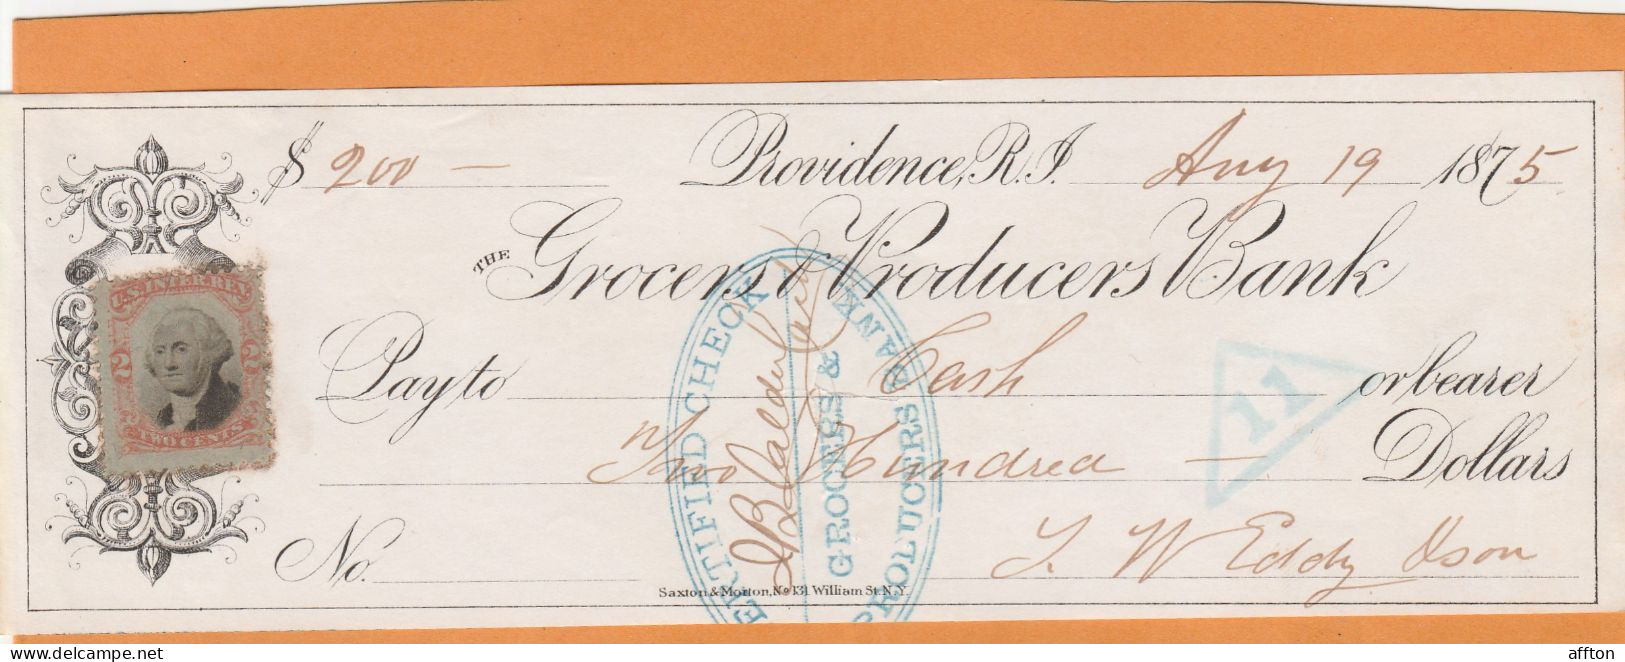 $ 200 — Providence, R.I. Aug 19 1875.
THE Grocers & Producers Bank
Pay to Cash or bearer
Two Hundred — Dollars
No. T. W Eddy & son
Saxton & Morton, No 131 William St. N.Y.
U.S. INTER. REV.
2 2
TWO CENTS
CERTIFIED CHECK
GROCERS &
PRODUCERS BANK
11
delcampe.net
affton